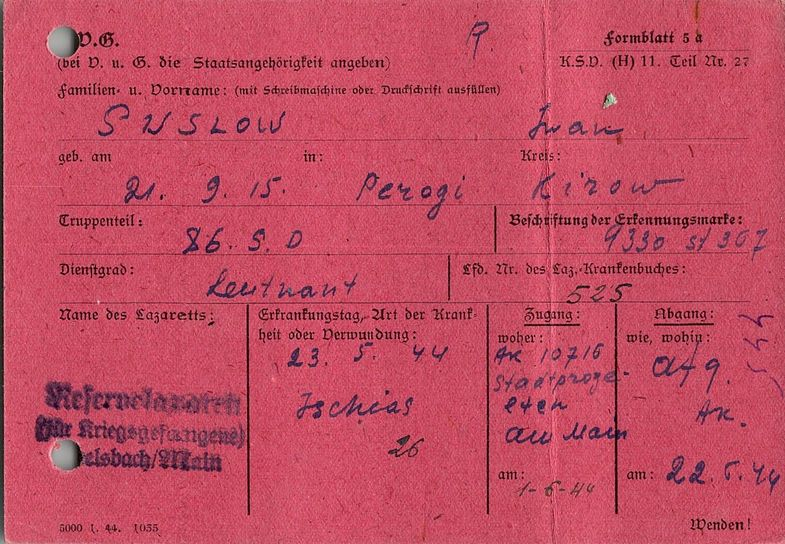 V.G. R. Formblatt 5 a
(bei V. u. G. die Staatsangehörigkeit angeben) K.S.V. (H) 11. Teil Nr. 27
Familien- u. Vorname: (mit Schreibmaschine oder Druckschrift ausfüllen)
SUSLOW Iwan
geb. am in: Kreis:
21. 9. 15. Perogi Kirow
Truppenteil: Beschriftung der Erkennungsmarke:
86. S. D 9330 st 367
Dienstgrad: Lfd. Nr. des Laz.-Krankenbuches:
Leutnant 525
Name des Lazaretts:
Reservelazarett
(für Kriegsgefangene)
elsbach/Main
Erkrankungstag, Art der Krank-
heit oder Verwundung:
23. 5. 44
Ischias
26
Zugang:
woher:
AK 10716
Stadtproze-
lten
am Main
am: 1-6-44
Abgang:
wie, wohin:
AK.
am: 22. 44
5000 1. 44. 1055 Wenden!